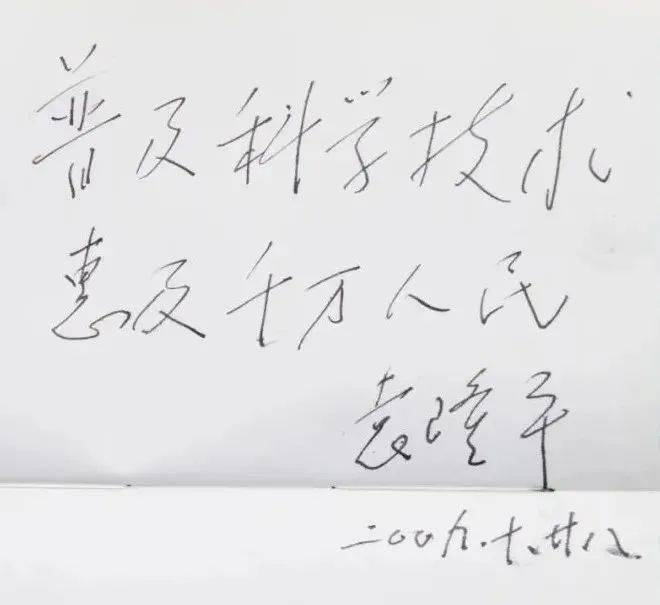 普及科学技术
惠及千万人民
袁隆平
二〇〇九.十.廿八